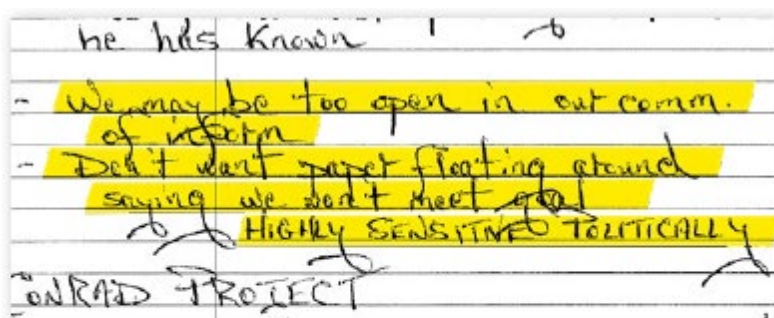 he has known
- We may be too open in our comm.
of inform
- Don't want paper floating around
saying we won't meet goal
HIGHLY SENSITIVE POLITICALLY
CONRAD PROJECT